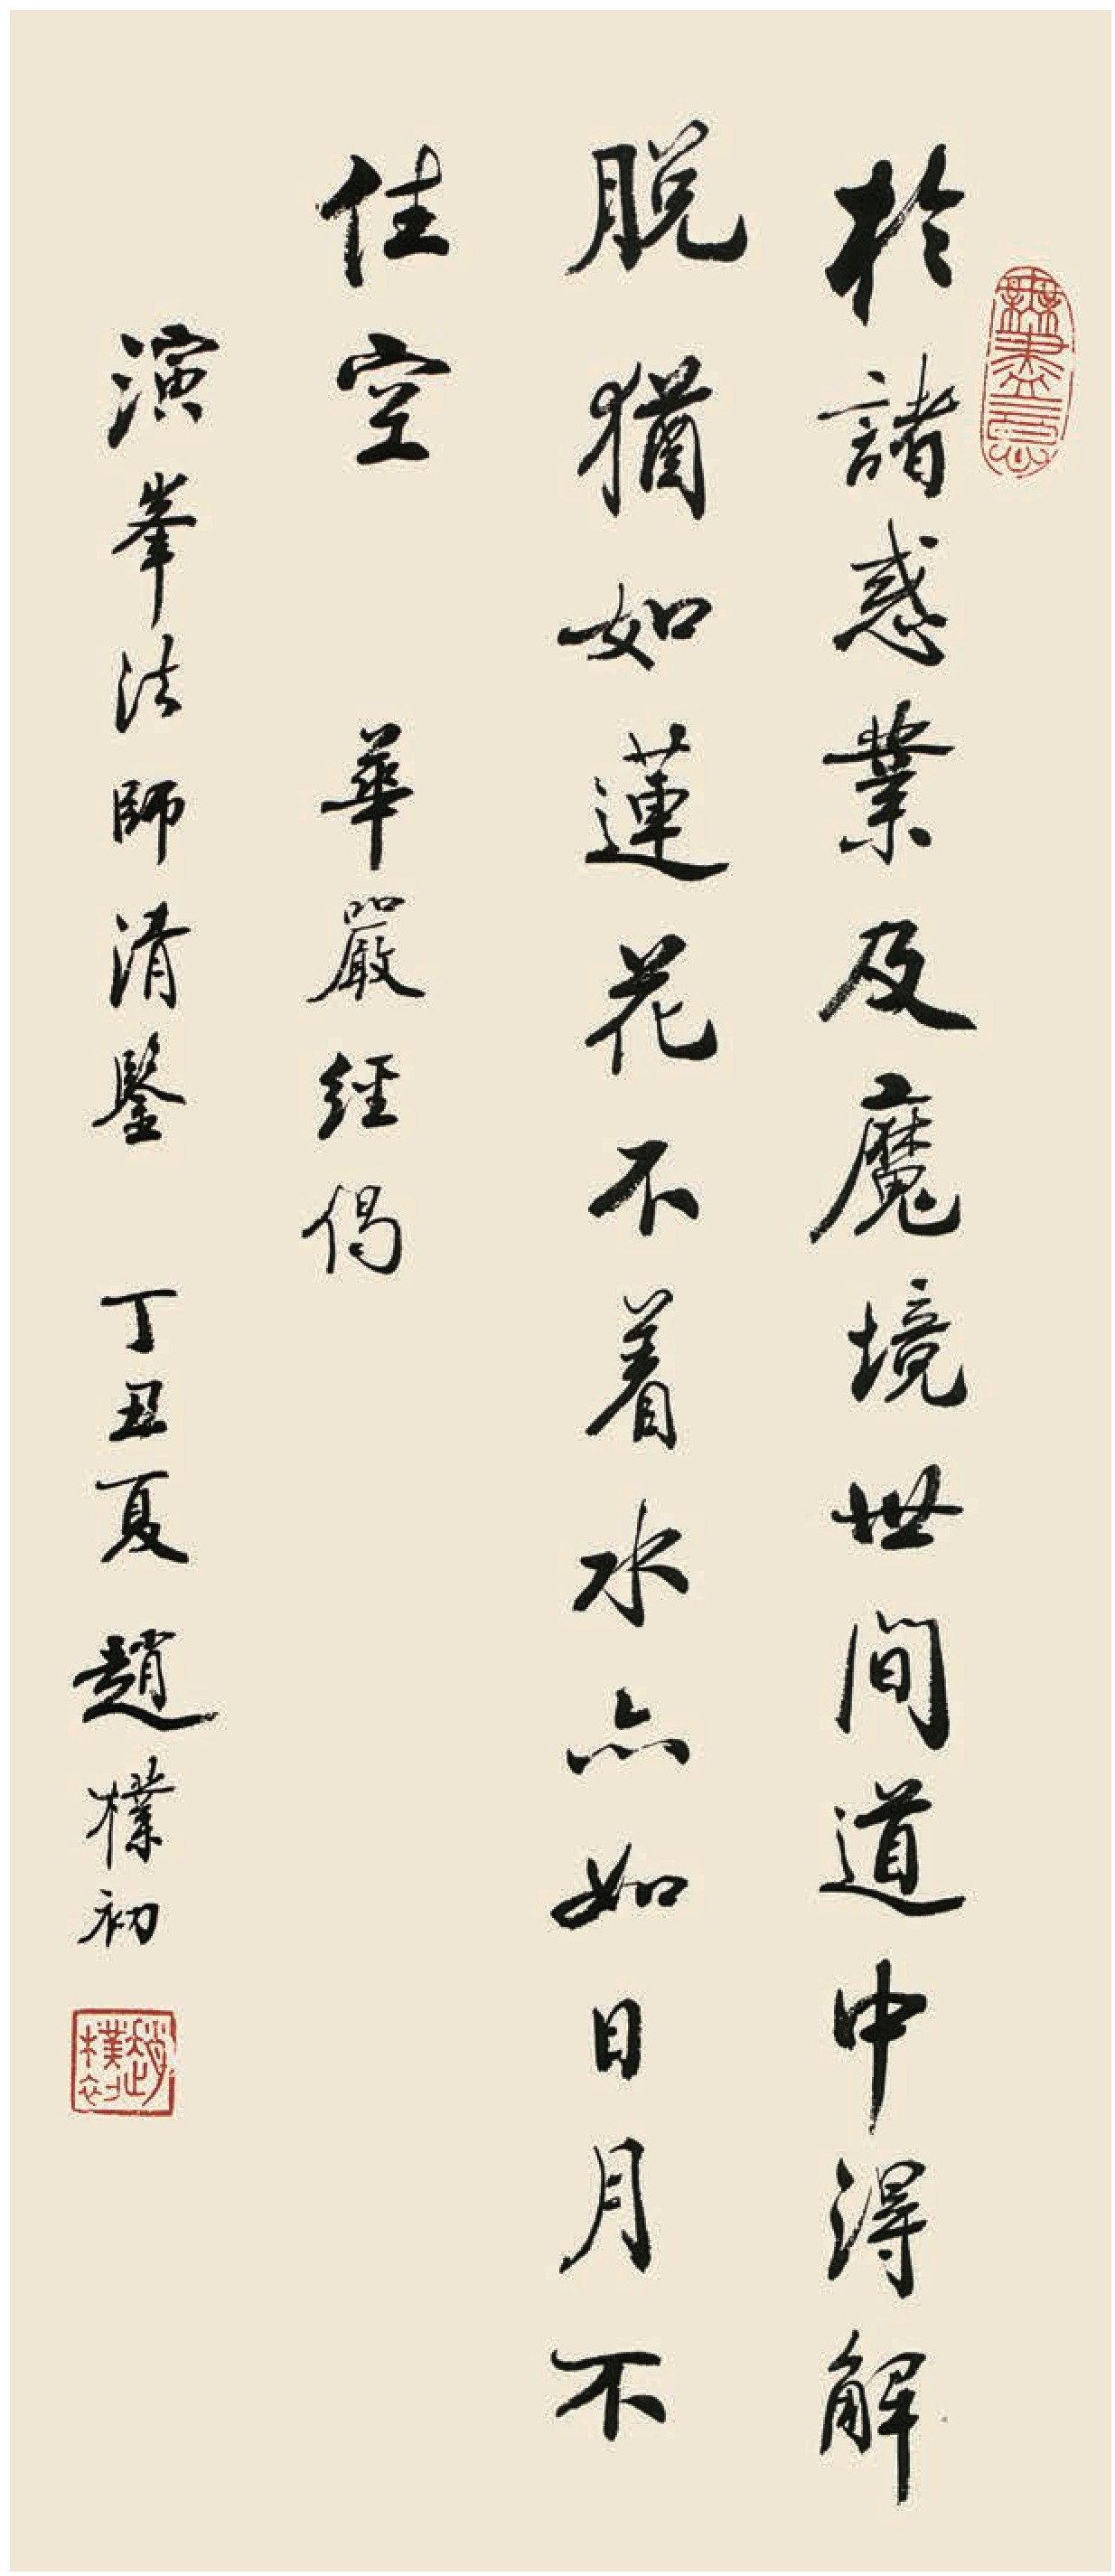 無盡意
於諸惑業及魔境世間道中得解
脫猶如蓮花不着水亦如日月不
住空 華嚴經偈
演峯法師清鑒 丁丑夏 趙樸初
趙樸初